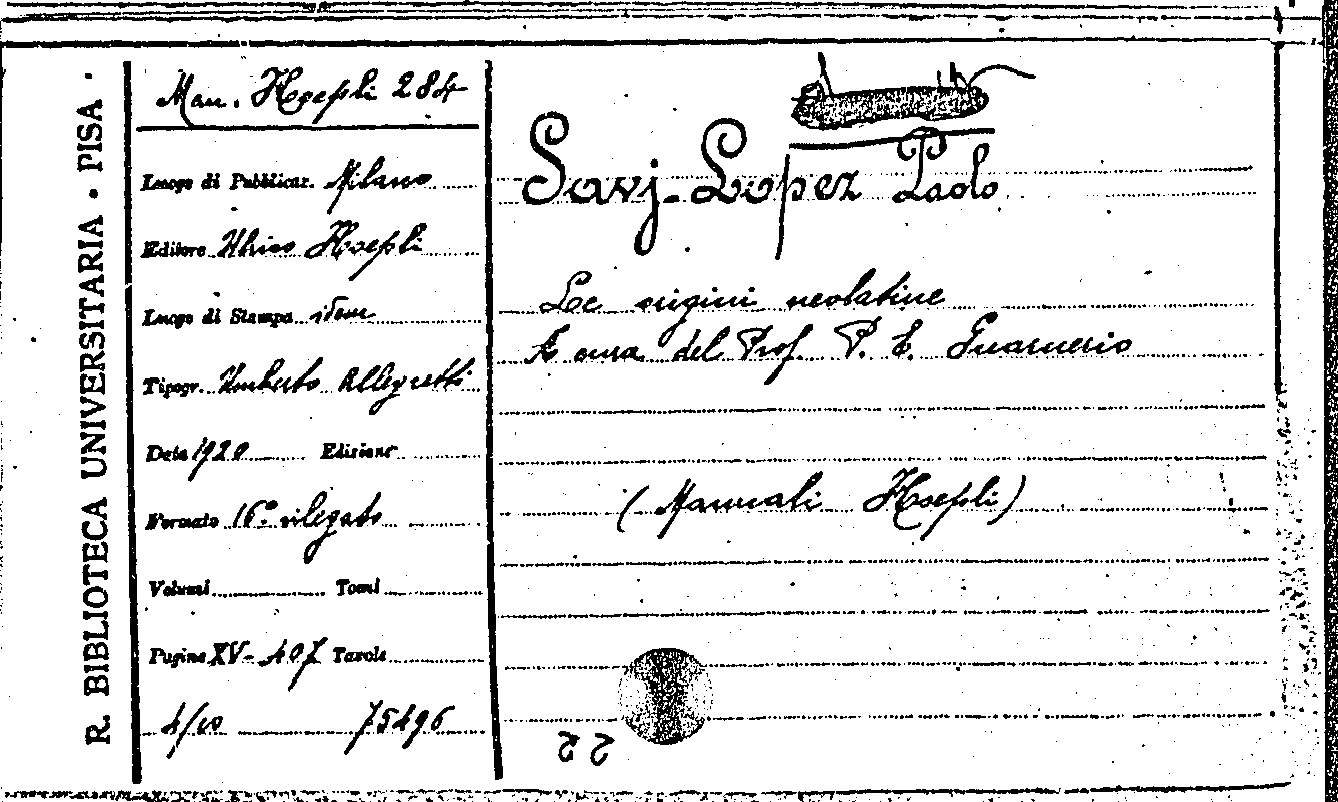 R. BIBLIOTECA UNIVERSITARIA · PISA ·
Man. Hoepli 284
Luogo di Pubblicaz. Milano
Editore Ulrico Hoepli
Luogo di Stampa idem
Tipogr. Umberto Allegretti
Data 1920 Edizione
Formato 16° rilegato
Volumi Tomi
Pagine XV-407 Tavole
4/10 75496
Savj-Lopez Paolo
Le origini neolatine
A cura del Prof. P. E. Guarnerio
(Manuali Hoepli)
22